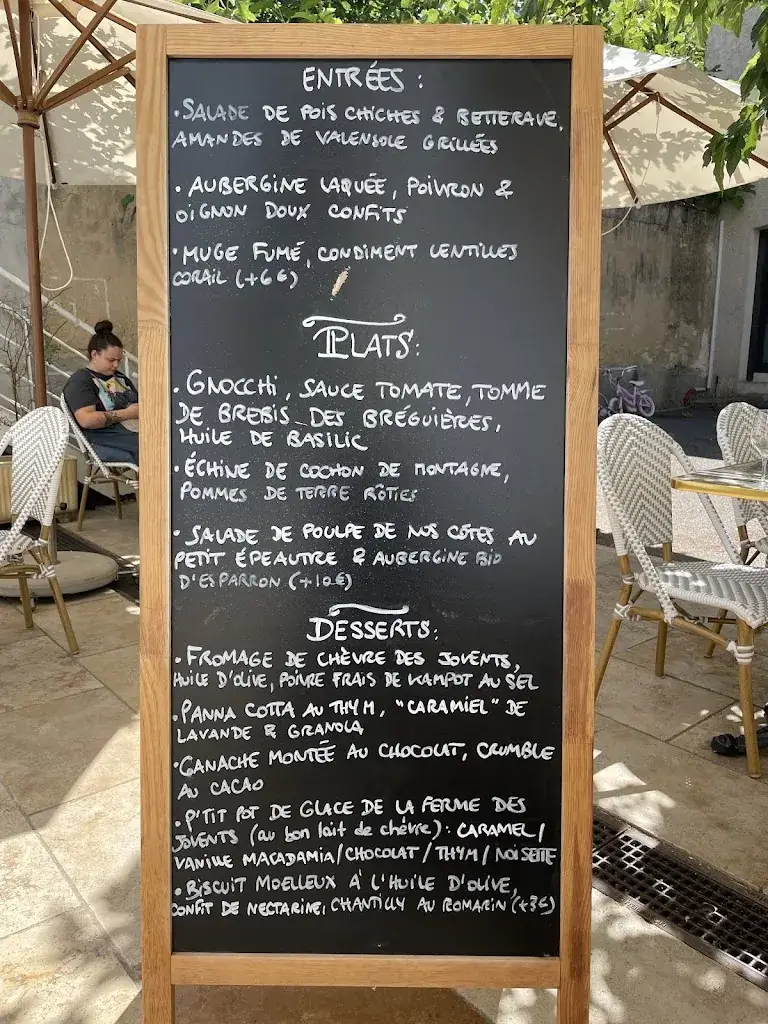 ENTRÉES :
• SALADE DE POIS CHICHES & BETTERAVE,
AMANDES DE VALENSOLE GRILLÉES
• AUBERGINE LAQUÉE, POIVRON &
OIGNON DOUX CONFITS
• MUGE FUMÉ, CONDIMENT LENTILLES
CORAIL (+6€)
PLATS :
• GNOCCHI, SAUCE TOMATE, TOMME
DE BREBIS DES BRÉGUIÈRES,
HUILE DE BASILIC
• ÉCHINE DE COCHON DE MONTAGNE,
POMMES DE TERRE RÔTIES
• SALADE DE POULPE DE NOS CÔTES AU
PETIT ÉPEAUTRE & AUBERGINE BIO
D'ESPARRON (+10€)
DESSERTS :
• FROMAGE DE CHÈVRE DES JOVENTS,
HUILE D'OLIVE, POIVRE FRAIS DE KAMPOT AU SEL
• PANNA COTTA AU THYM, "CARAMIEL" DE
LAVANDE & GRANOLA
• GANACHE MONTÉE AU CHOCOLAT, CRUMBLE
AU CACAO
• P'TIT POT DE GLACE DE LA FERME DES
JOVENTS (au bon lait de chèvre) : CARAMEL /
VANILLE MACADAMIA / CHOCOLAT / THYM / NOISETTE
• BISCUIT MOELLEUX À L'HUILE D'OLIVE,
CONFIT DE NECTARINE, CHANTILLY AU ROMARIN (+3€)